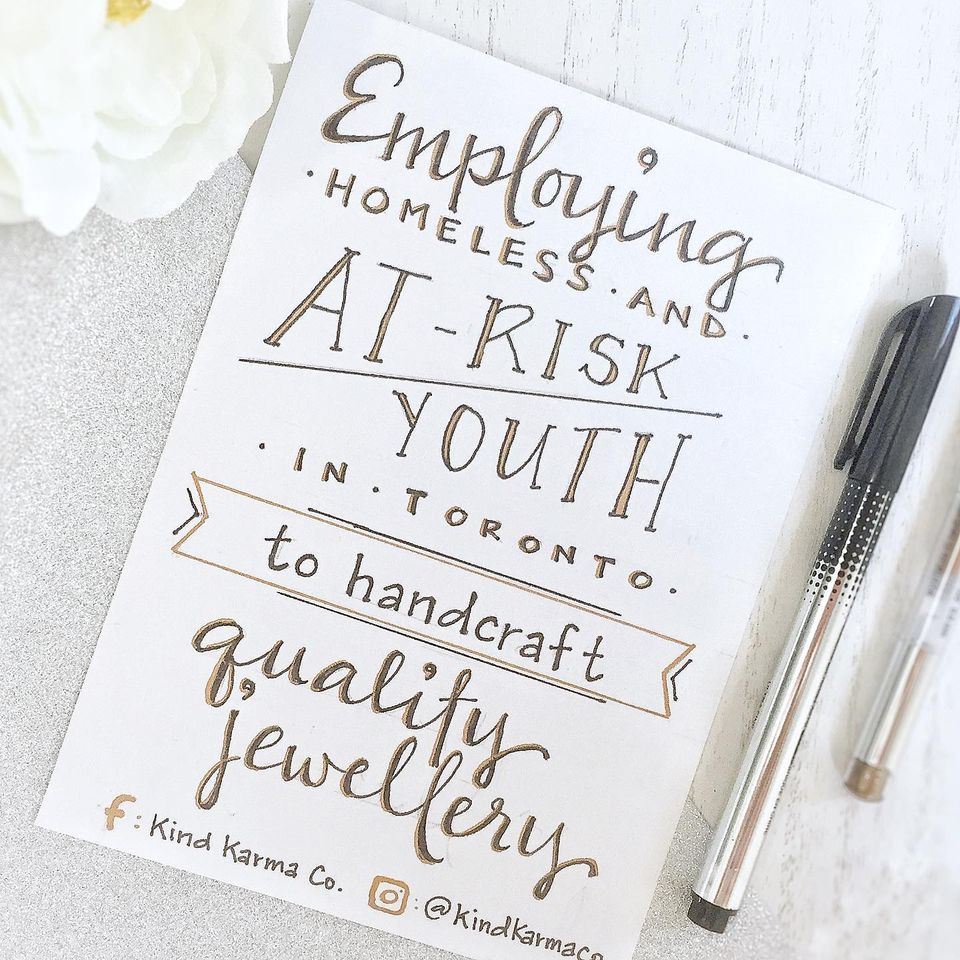 Employing
·HOMELESS·AND·
AT-RISK
YOUTH
·IN·TORONTO·
to handcraft
quality
jewellery
f: Kind Karma Co. : @kindkarmaco